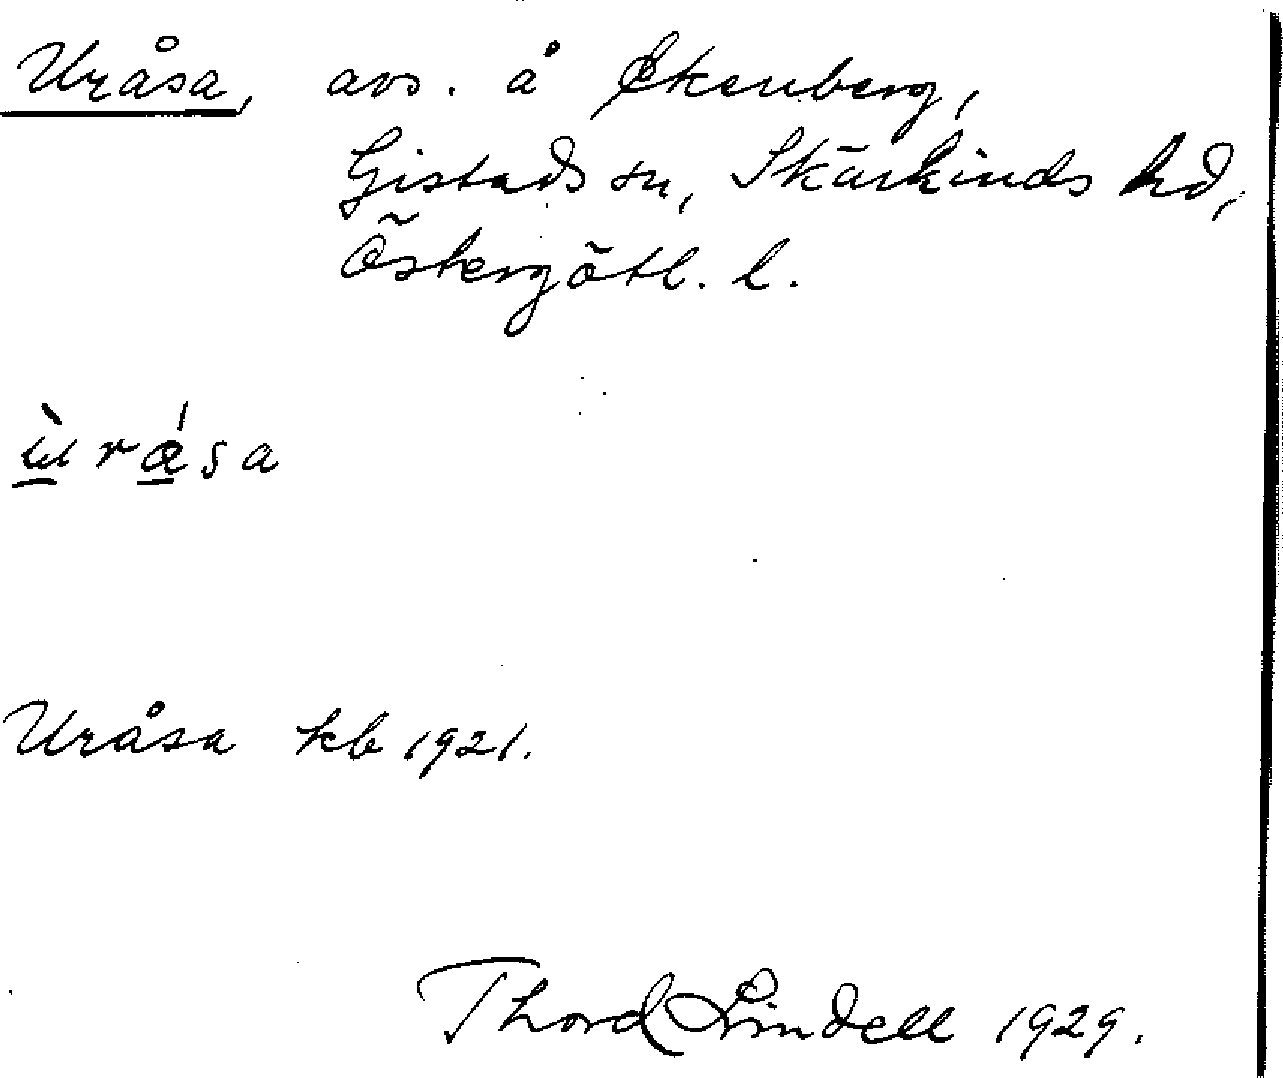 Uråsa, avs. å Ekenberg,
Gistads sn, Skärkinds hd,
Östergötl. l.
Uråsa kb 1921.
Thord Lindell 1929.